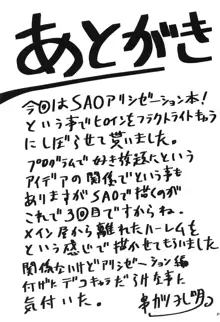 あとがき
今回はSAOアリシゼーション本!
という事でヒロインをフラクトライトちゃう
にしぼらせて貰いました。
プログラムで好き放題にという
アイデアの関係でという事も
ありますがSAOで描くのが
これで3回目ですからね。
メイン層から離れたハーレムを
という感じで描かせてもらいました
関係ないけどアリシゼーション編
デコキャラだらけな事に
気付いた。